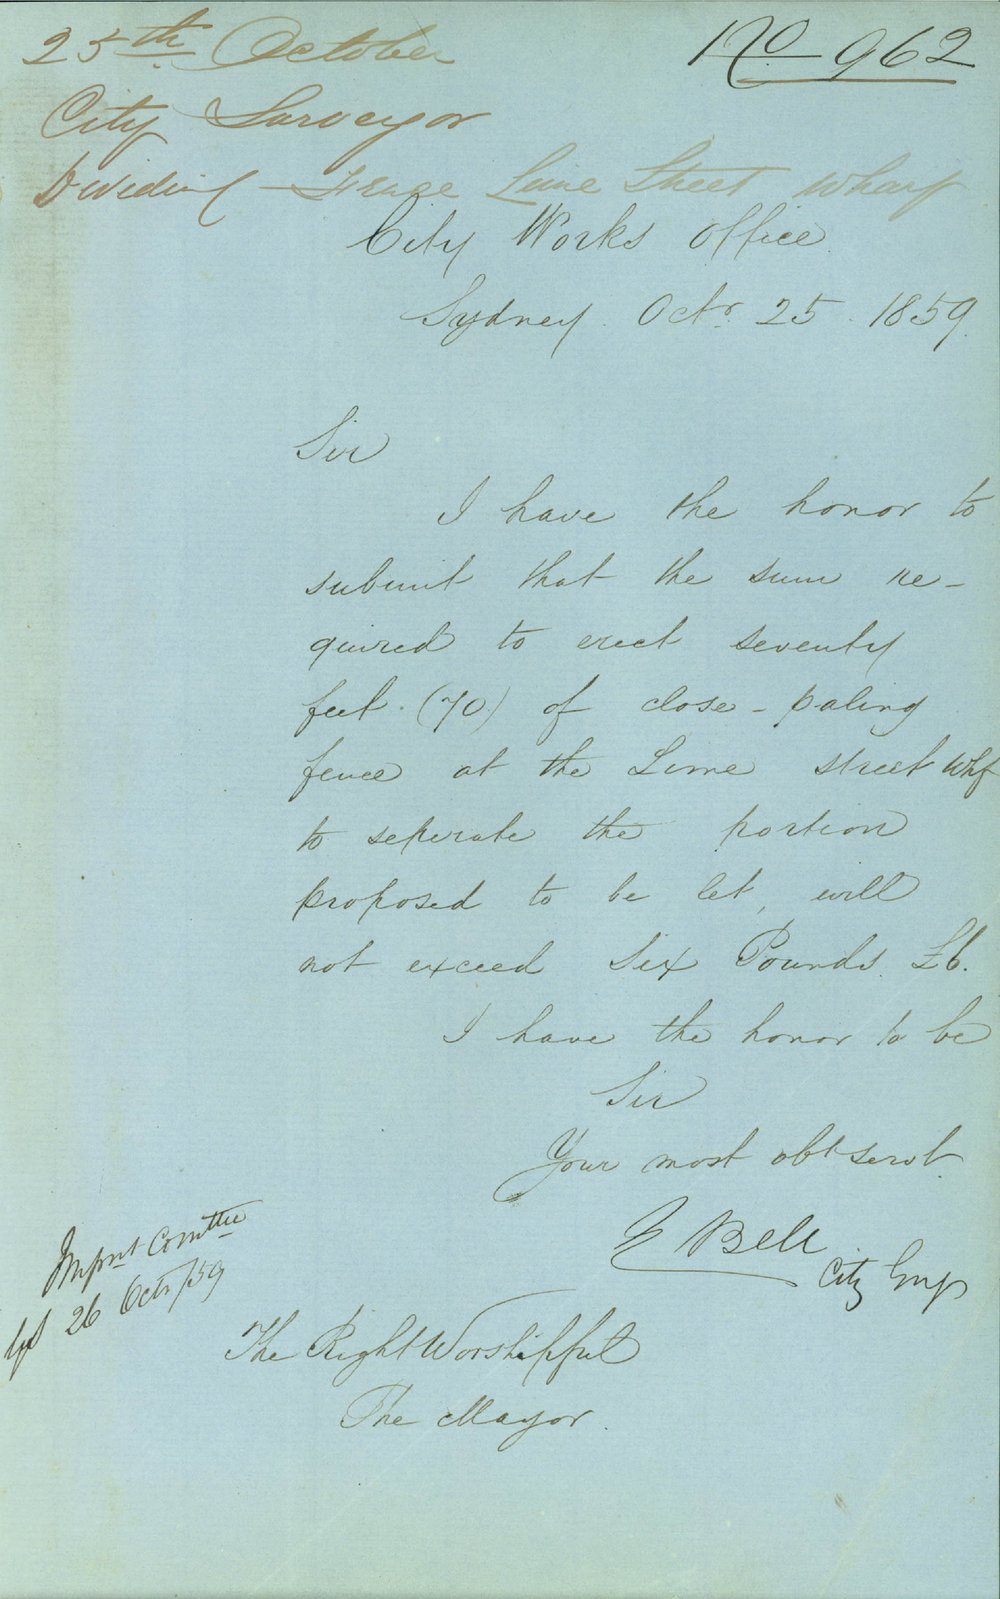 25th October
No 962
City Surveyor
Dividing Fence Lime Street Wharf
City Works Office
Sydney. Octr. 25. 1859.
Sir
I have the honor to
submit that the sum re-
quired to erect seventy
feet. (70) of close-paling
fence at the Lime street Whf
to seperate the portion
proposed to be let, will
not exceed Six Pounds. £6.
I have the honor to be
Sir
Your most obt servt.
E Bell
City Engr
Impnt Comttee
26 Octr/59
The Right Worshipful
The Mayor.